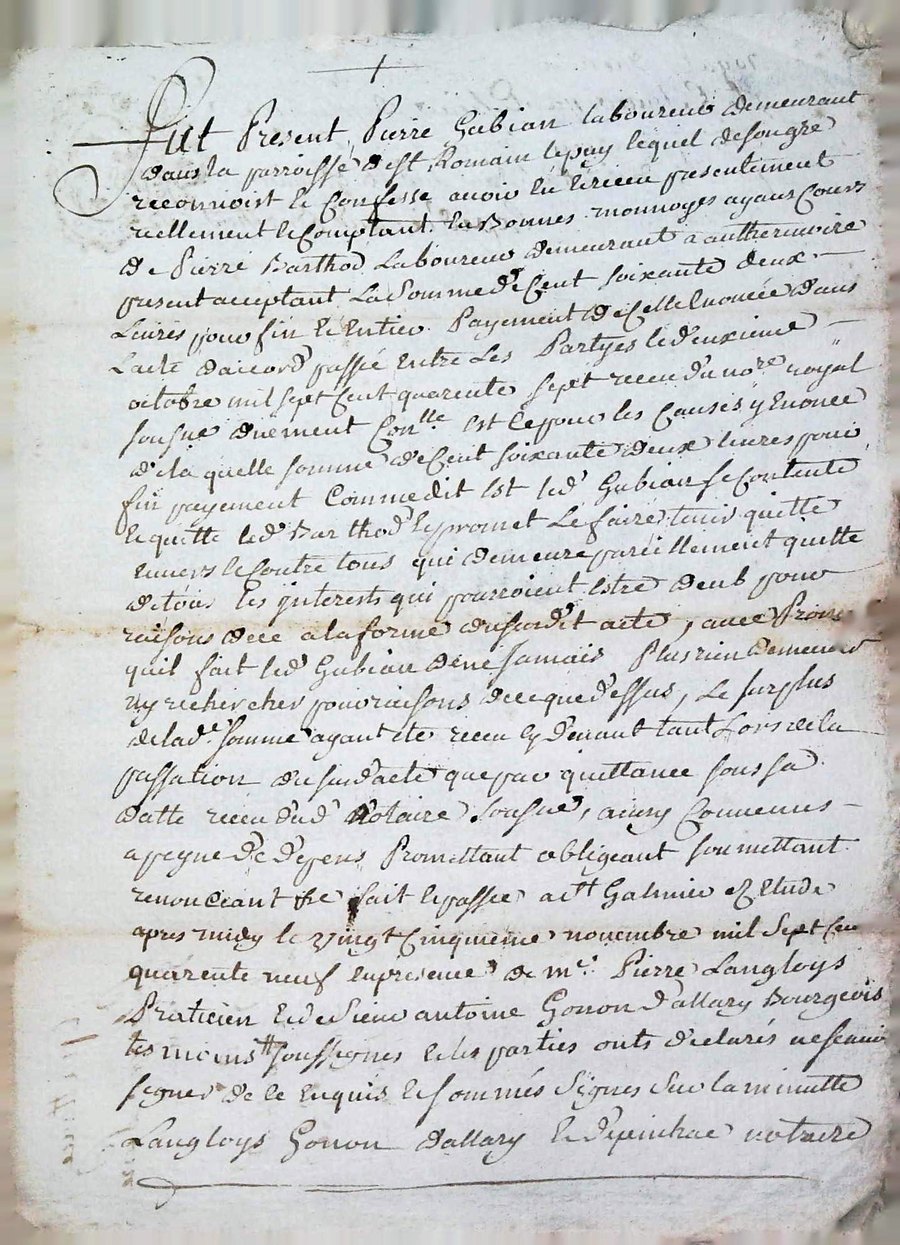 Fut Present Pierre Gubian laboureur demeurant
dans la parroisse de st Romain le puy lequel de son gre
reconnoist et Confesse avoir eu et receu presentement
reellement et Comptant en Bonnes monnoyes ayans Cours
de Pierre Barthod Laboureur demeurant a
present acceptant La Somme de Cent soixante deux
Livres pour fin et Entier Payement de Celle Enoncée dans
Lacte daccord passé Entre Les Partyes le deuxieme
octobre mil sept Cent quarente sept receu du nore royal
sousne duement Conlle Est Ce pour les Causes y Enonce
de la quelle somme de Cent soixante deux livres pour
fin payement Comme dit Est led Gubian se Contente
et quitte led Barthod et promet Le faire tenir quitte
Envers et Contre tous qui demeure pareillement quitte
de tous les jnterests qui pourroient Estre deub pour
raisons de ce a la forme du susdit acte, avec Prome
quil fait led Gubian de ne Jamais Plus rien Demender
ny rechercher pour raisons de ce que dessus, Le surplus
de lade somme ayant ete receu cy devant tant Lors de la
passation du susd acte que par quittance sous sa
datte receu dud Notaire sousne, ainsy Convenus
a peyne de depens Promettant obligeant soumettant
renonciant fte fait et passée a st Galmier Ez Etude
apres midy le vingt Cinquieme novembre mil Sept Cen
quarente neuf En presence de mr Pierre Langloys
Praticien Et de Sieur antoine Gonon Dallary Bourgeois
tesmoins soussignes Et les parties onts declarés ne scavoir
signer de ce Enquis et sommés Signés Sur la minutte
Langloys Gonon dallary et depeinhac notaire